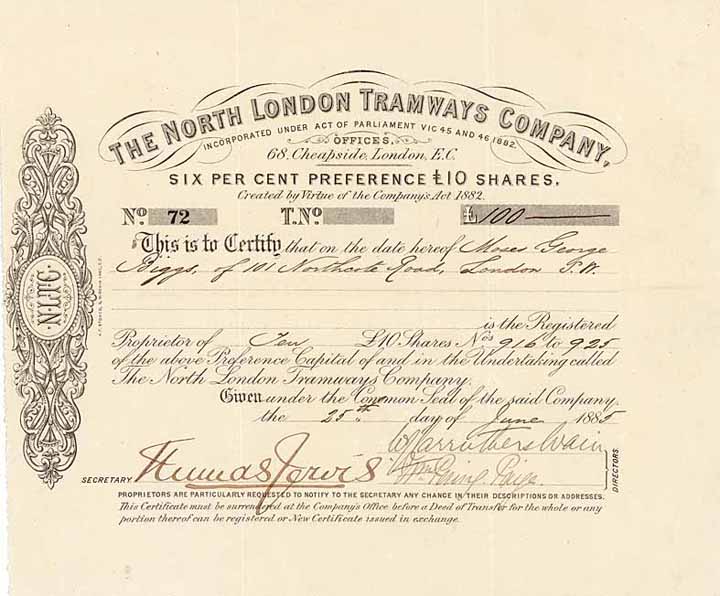 THE NORTH LONDON TRAMWAYS COMPANY,
INCORPORATED UNDER ACT OF PARLIAMENT VIC 45 AND 46 1882.
OFFICES,
68, Cheapside, London, E.C.
SIX PER CENT PREFERENCE £10 SHARES.
Created by Virtue of the Company's Act 1882.
No. 72 T.No. £ 100
This is to Certify that on the date hereof Moses George
Biggs, of 101 Northcote Road, London S.W.
is the Registered
Proprietor of Ten £10 Shares Nos 916 to 925
of the above Preference Capital of and in the Undertaking called
The North London Tramways Company.
Given under the Common Seal of the said Company,
the 25th day of June 1885
SECRETARY Thomas Jarvis
W Carruthers Wain
DIRECTORS
PROPRIETORS ARE PARTICULARLY REQUESTED TO NOTIFY TO THE SECRETARY ANY CHANGE IN THEIR DESCRIPTIONS OR ADDRESSES.
This Certificate must be surrendered at the Company's Office before a Deed of Transfer for the whole or any
portion thereof can be registered or New Certificate issued in exchange.
N.L.T.C.